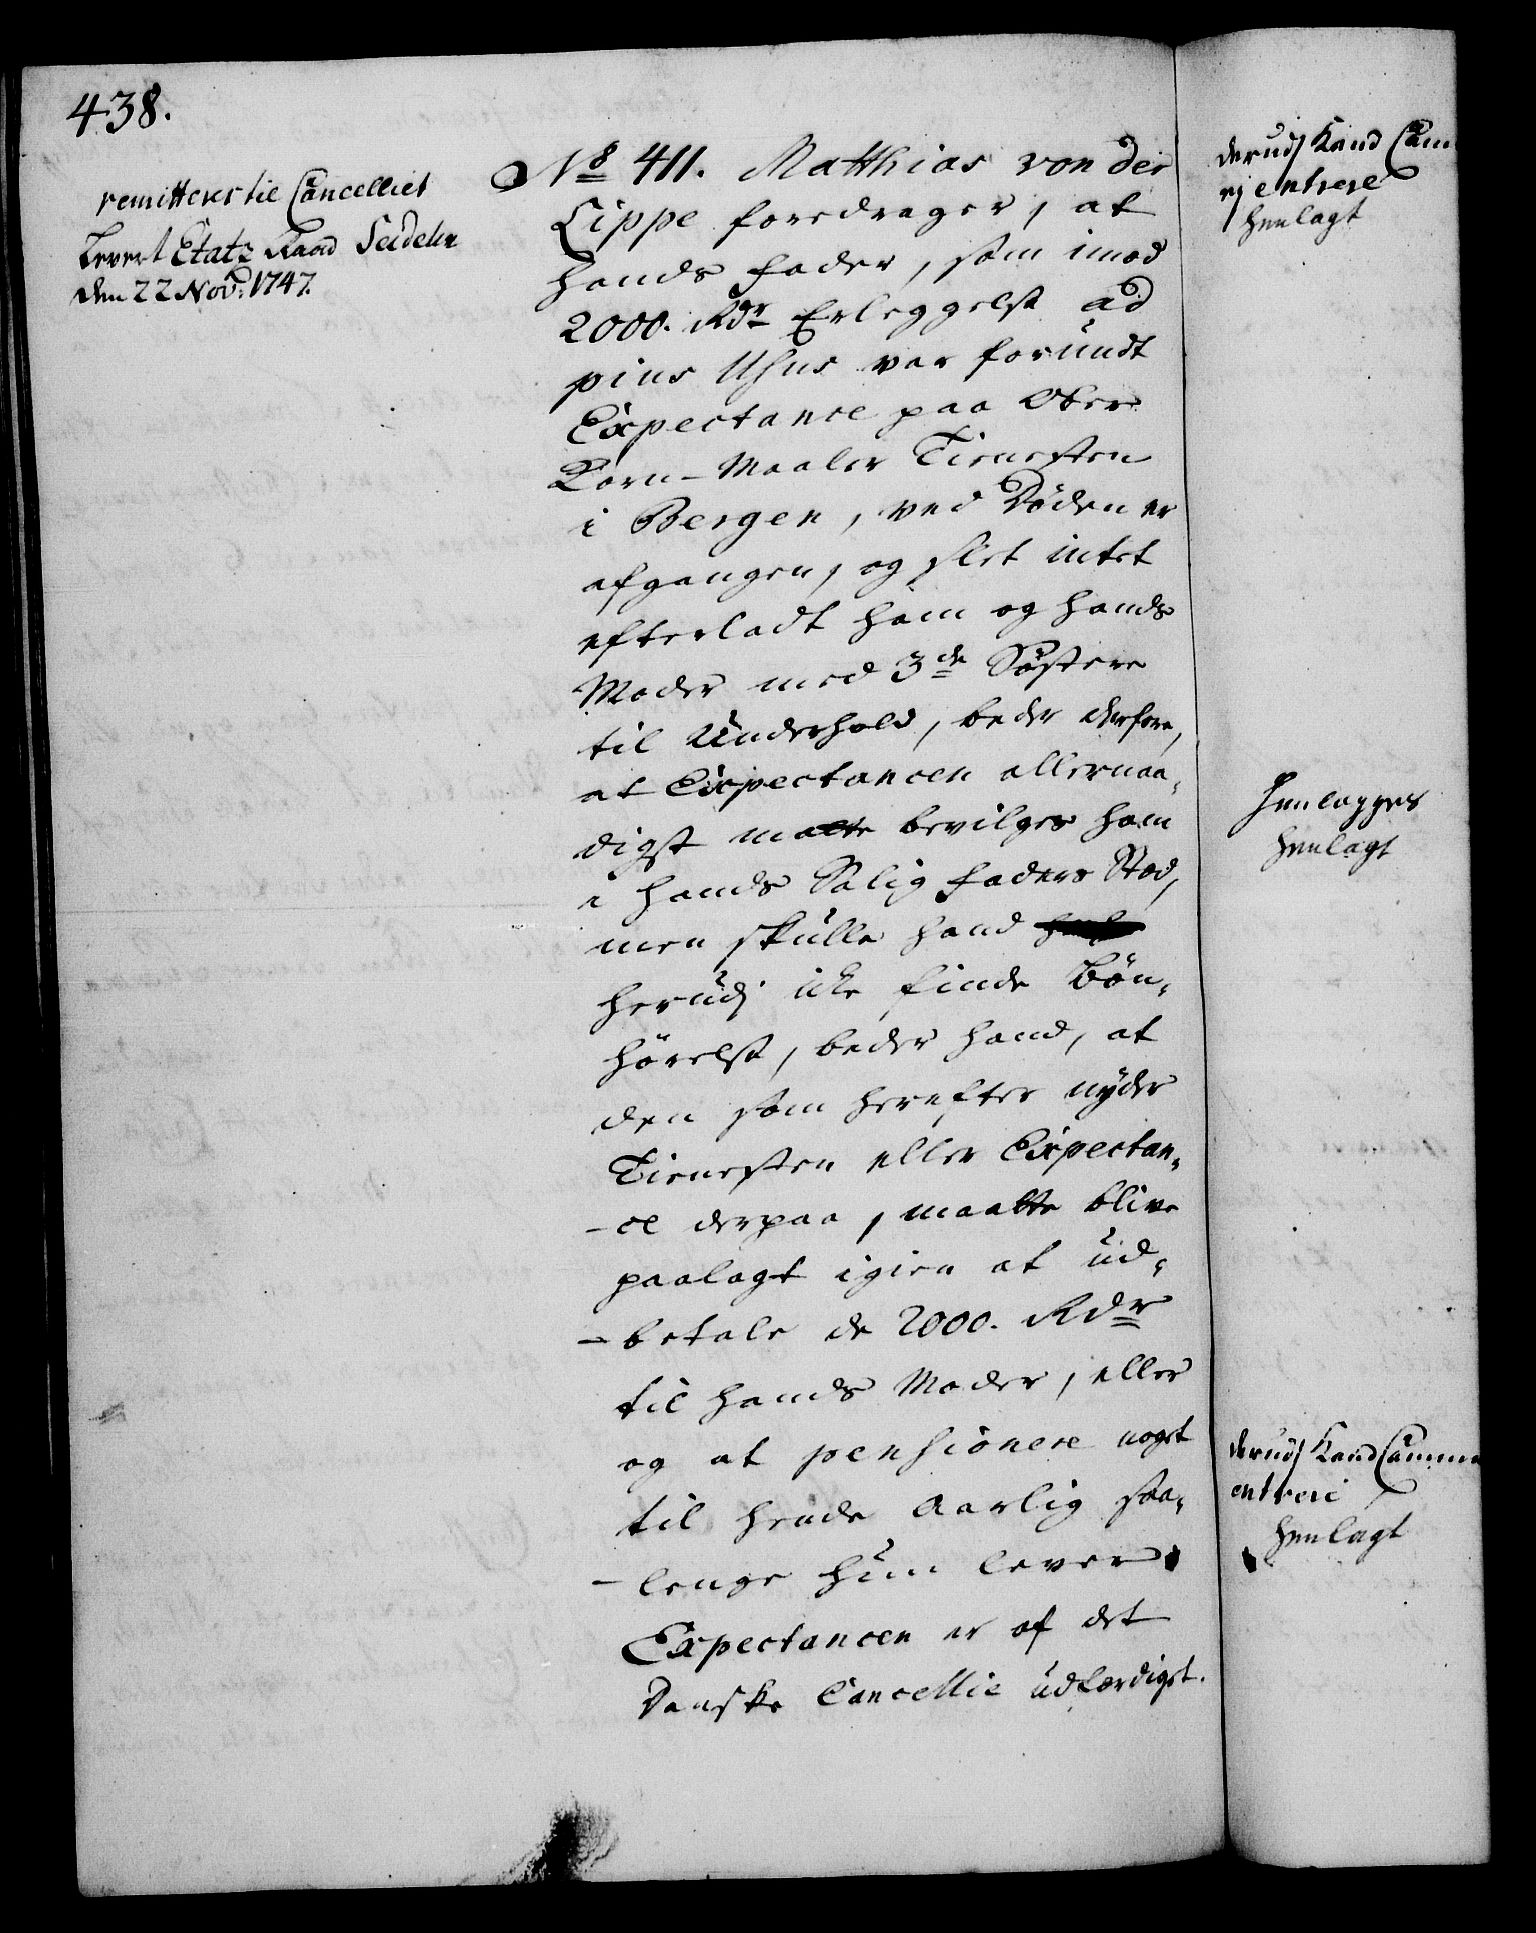 438.
remitteres til Cancelliet
Levert Etatz Raad Seidelin
den 22 Nov: 1747.
No 411. Matthias von der
Lippe foredrager, at
hands Fader, som imod
2000. Rdr Erleggelse ad
pius Usus var forundt
Expectance paa Ober
Korn-Maaler Tienesten
i Bergen, ved Døden er
afgangen, og slet intet
efterladt ham og hands
Moder med 3de Søstere
til Underhold, beder derfore,
at Expectancen allernaa-
digst maatte bevilges ham
i hands Salig Faders Stæd,
men skulle hand
herudj icke finde Bøn-
hørelse, beder hand, at
den som herefter nyder
Tienesten eller Expectan-
-ce derpaa, maatte blive
paalagt igien at ud-
-betale de 2000. Rdr
til hands Moder, eller
og at pensionere noget
til hende Aarlig saa-
-lenge hun lever.
Expectancen er af det
Danske Cancellie udfærdiget.
derudj Kand Cam
ej entrere
henlagt
Henlegges
henlagt
derudj Kand Camme
entrere
henlagt